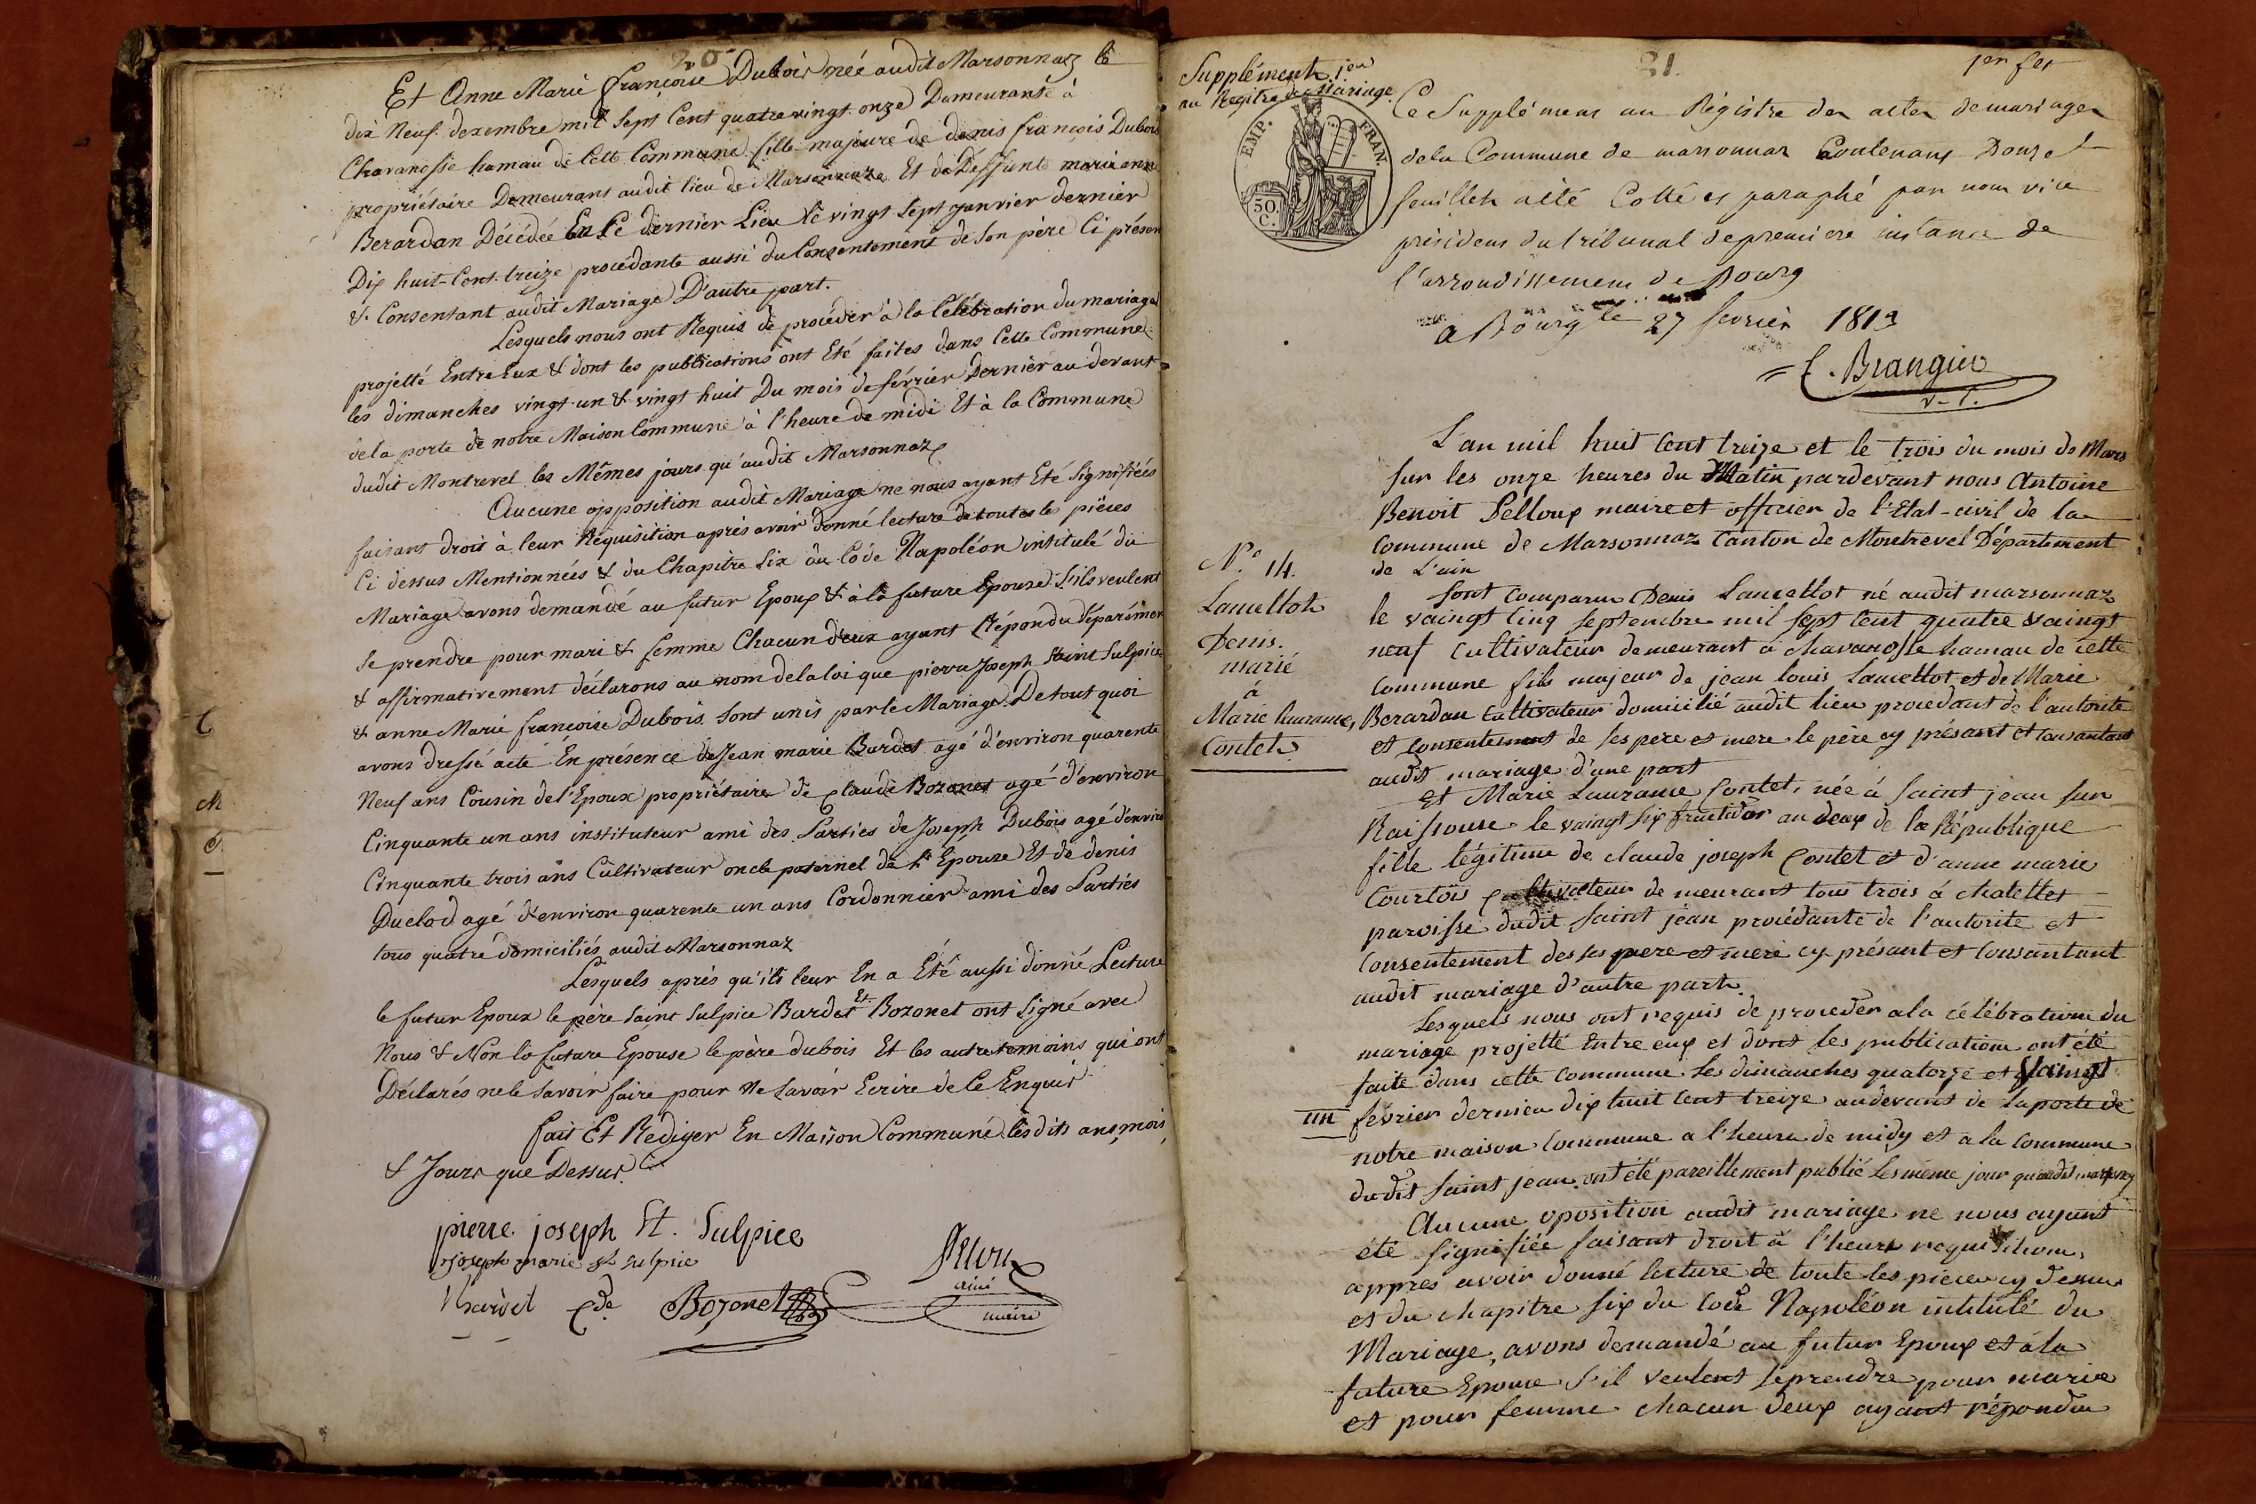 20
Et Anne Marie françoise Dubois née audit Marsonnaz le
dix Neuf dexembre mil Sept Cent quatre vingt onze Demeurante à
Chavanosse hamau de Cette Commune fille majeure de denis françois Dubois
propriétaire Demeurant audit lieu de Marsonnaz Et de Deffunte marie anne
Berardan Décédée En Ce dernier Lieu le vingt Sept janvier dernier
Dix huit Cent treize procédante aussi du Consentement de Son père Ci présent
& Consentant audit Mariage D'autre part.
Lesquels nous ont Requis de procéder à la Célébration du mariage
projetté Entre Eux & dont les publications ont Eté faites dans Cette Commune
les dimanches vingt un & vingt huit Du mois de février Dernier au devant
de la porte de notre Maison Commune à l'heure de midi Et à la Commune
dudit Montrevel les Mêmes jours qu'audit Marsonnaz
Aucune opposition audit Mariage ne nous ayant Eté Signifiéés
faisant droit à leur Réquisition après avoir donné lecture de toutes les pièces
Ci dessus Mentionnées & du Chapitre Six du Code Napoléon intitulé du
Mariage avons demandé au futur Epoux & à la future Epouse S'ils veulent
Se prendre pour mari & femme Chacun d'eux ayant Répondu Séparément
& affirmativement déclarons au nom de la loi que pierre Joseph Saint Sulpice
& anne Marie françoise Dubois Sont unis par le Mariage De tout quoi
avons dressé acte En présence de Jean marie Bardet agé d'environ quarente
Neuf ans Cousin de l'Epoux propriétaire de Claude Bozonet agé d'environ
Cinquante un ans instituteur ami des Parties de Joseph Dubois agé d'environ
Cinquante trois ans Cultivateur oncle paternel de l'Epouse Et de denis
Duclod agé d'environ quarente un ans Cordonnier ami des Parties
tous quatre domiciliés audit Marsonnaz
Lesquels après qu'ils leur En a Eté aussi donné Lecture
le futur Epoux le père Saint Sulpice Bardet Et Bozonet ont Signé avec
Nous & Non la future Epouse le père dubois Et les autres temoins qui ont
Déclarés ne le Savoir faire pour Ne Savoir Ecrire de Ce Enquis
fait Et Rediger En Maison Commune lesdits ans, mois
& Jours que Dessus
pierre joseph St. Sulpice
joseph marie St Sulpice
Bardet Cde Bozonet
Pelloux
ainé
maire
C
M
C
Supplément 1er
au Registre de Mariage
81
1er fet
EMP. FRAN.
50.
C.
Ce Supplément au Régistre des actes de mariages
dela Commune de marsonnaz Contenant Douze
feuillets a été Cotté et paraphé par nous vice
président du tribunal de première instance de
l'arrondissement de Bourg
a Bourg le 27 fevrier 1813
C. Brangier
v-p.
L'an mil huit Cent treize et le trois du mois de Mars
sur les onze heures du Matin pardevant nous Antoine
Benoit Pelloux maire et officier de l'Etat-civil de la
Commune de Marsonnaz Canton de Montrevel Département
de L'ain
N.º 14.
Lancettot
Denis.
marié
à
Marie Lauranne,
Contet.
Sont Comparu Denis Lancettot né audit marsonnaz
le vaingt Cinq Septembre mil Sept Cent quatre vaingt
neuf Cultivateur demeurant à chavanosse hamau de cette
commune fils majeur de jean louis Lancettot et de Marie
Berardan Cultivateur domicilié audit lieu procedant de l'autorité
et Consentement de ses pere et mere le père cy présant et Consantant
audit mariage d'une part
et Marie Lauranne Contet, née à Saint jean sur
Raissouse le vaingt Six fructidor an deux de la République
fille légitime de claude joseph Contet et d'anne marie
Courtois Cultivateur de meurant tous trois à chatellet
paroisse dudit Saint jean procédante de l'autorite et
Consentement des ses pere et mere cy présant et Consantant
audit mariage d'autre part.
Lesquels nous ont requis de proceder a la célébration du
mariage projetté Entre eux et dont les publication ont été
faite dans cette Commune les dimanches quatorze et Vaingt
un février dernier dix huit Cent treize audevant de la porte de
notre maison Commune a l'heure de midy et a la Commune
dudit Saint jean ont été pareillement publié Les même jour qu'audit marsonnaz
Aucune oposition audit mariage ne nous ayant
été signifiée faisant droit à l'heurs requisitions,
appres avoir donné lecture de toute les pieces cy dessus
et du chapitre Six du Code Napoléon intitulé du
Mariage, avons demandé au futur Epoux et à la
future Epouse S'il veulent Se prendre pour marie
et pour femme chacun deux ayant répondu